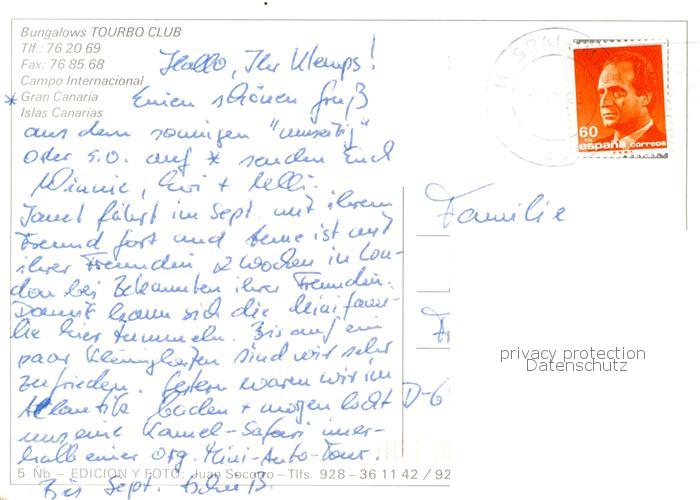 Bungalows TOURBO CLUB
Tlf.: 76 20 69
Fax: 76 85 68
Campo Internacional
* Gran Canaria
Islas Canarias
Hallo, Ihr Klemps!
Einen schönen Gruß
aus dem sonnigen "umseitig"
oder s.o. auf * senden Euch
Winnie, + Melli.
Janet fährt im Sept. mit ihrem
Freund fort und ist mit
ihrer Freundin 2 Wochen in Lon-
don bei Bekannten ihrer Freundin.
Damit kann sich die Minifami-
lie hier tummeln. Bis auf ein
paar Kleinigkeiten sind wir sehr
zufrieden. Gestern waren wir im
Atlantik baden + morgen lockt
uns eine Kamel-Safari inner-
halb einer org. Mini-Auto-Tour.
Bis Sept. tschüß.
5 Ñb - EDICION Y FOTO: Juan Socorro - Tlfs. 928 - 36 11 42 / 92
60
PTA
españa correos
Familie
D-6
privacy protection
Datenschutz